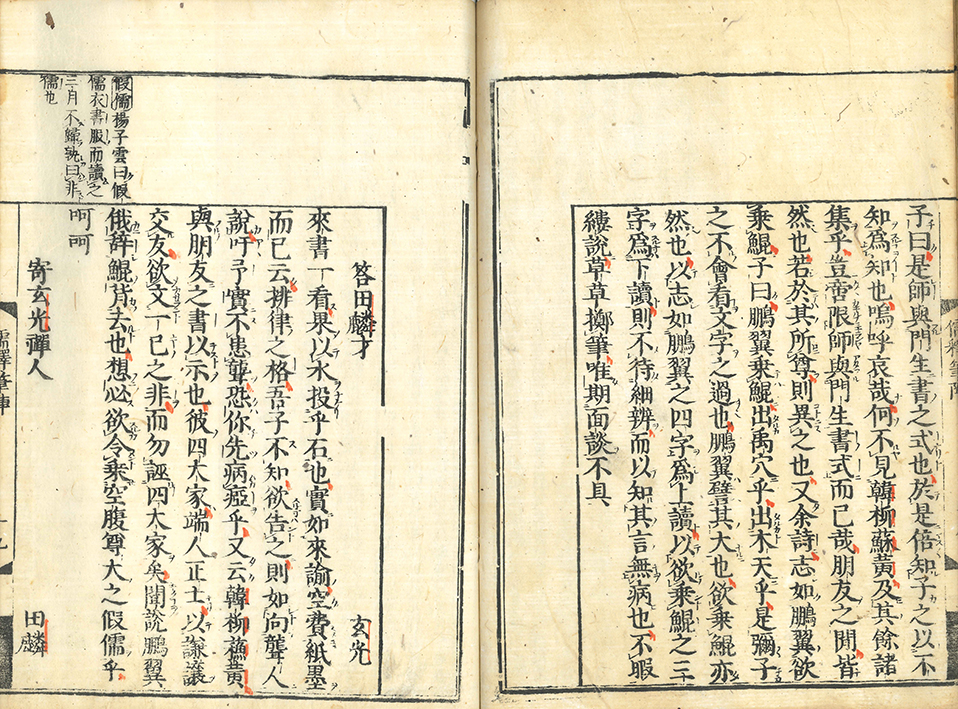 子曰是師與門生書之式也於是倍知子之以不
知爲知也嗚呼哀哉何不見韓柳蘇黃及其餘諸
集乎豈啻限師與門生書式而已哉朋友之間皆
然也若於其所尊則異之也又余詩志如鵬翼欲
乘鯤子曰鵬翼乘鯤出禹穴乎出木天乎是彌子
之不會看文字之過也鵬翼譬其大也欲乘鯤亦
然也以志如鵬翼之四字爲上讀以欲乘鯤之三
字爲下讀則不待細辨而以知其言無病也不暇
縷說草草擲筆唯期面談不具
答田麟才 玄光
來書一看果以水投乎石也實如來諭空費紙墨
而已云排律之格吾子不知欲告之則如向聾人
說吁予實不患聾恐你先病瘂乎又云韓柳蘇黃
與朋友之書以示也彼四大家端人正士以謙讓
交友欲文一己之非而勿誣四大家矣聞說鵬翼
俄辭鯤背去也想必欲令乘空腹尊大之假儒乎
呵呵
寄玄光禪人 田麟
假儒楊子雲曰假
儒衣書服而讀之
三月不歸孰曰非
儒也